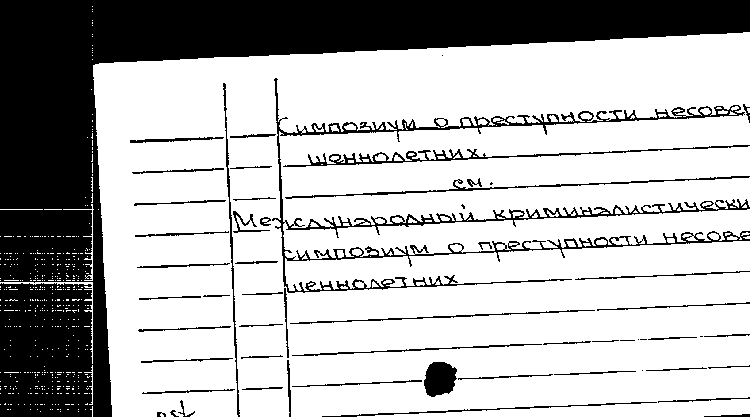 Симпозиум о преступности несовер
шеннолетних.
см.
Международный криминалистически
симпозиум о преступности несове
шеннолетних